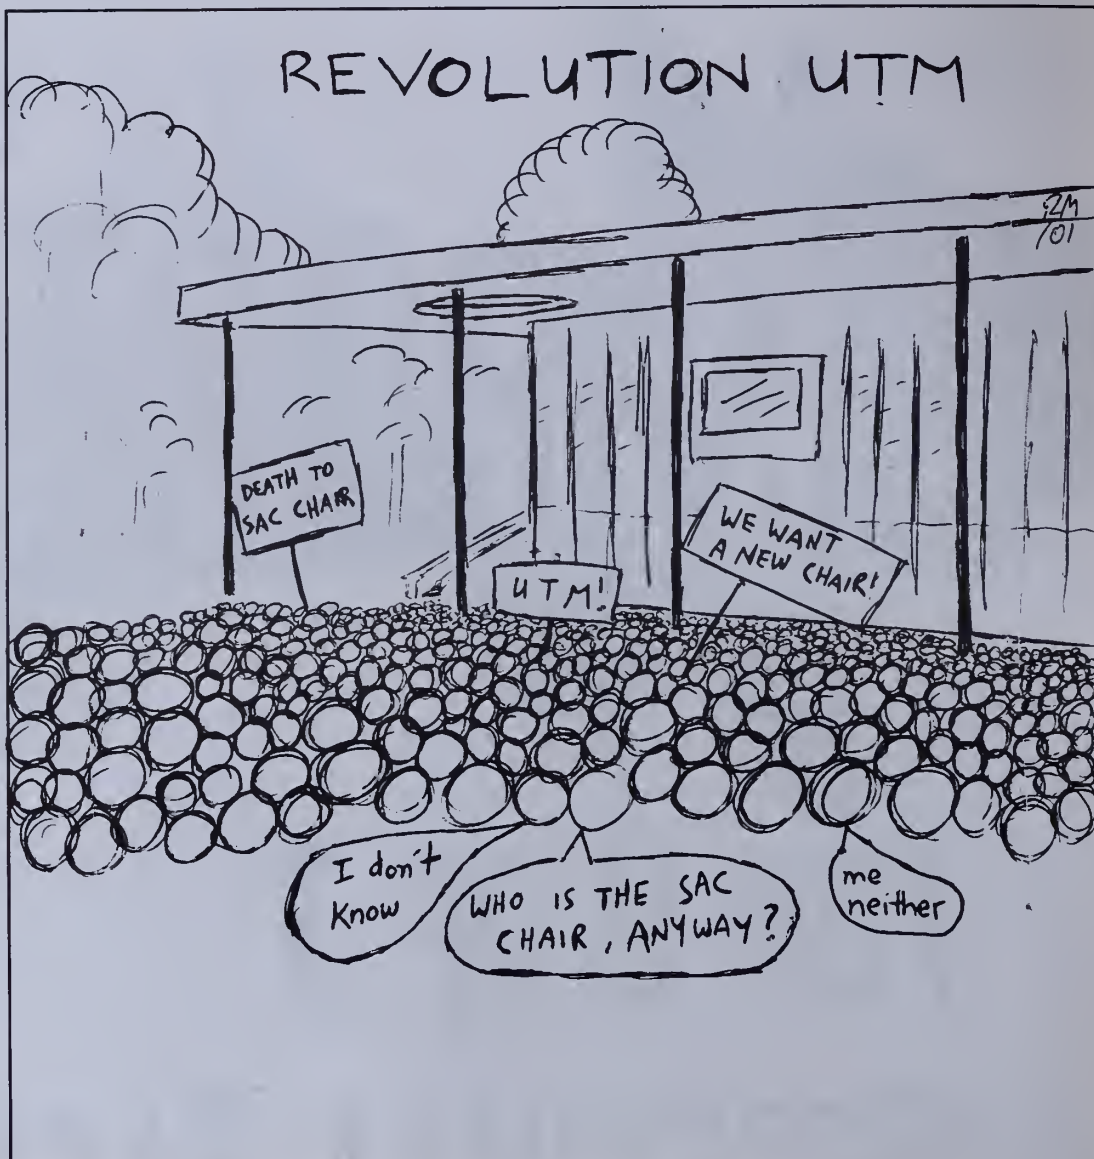 REVOLUTION UTM
DEATH TO
SAC CHAIR
UTM!
WE WANT
A NEW CHAIR!
I don't
know
WHO IS THE SAC
CHAIR, ANYWAY?
me
neither